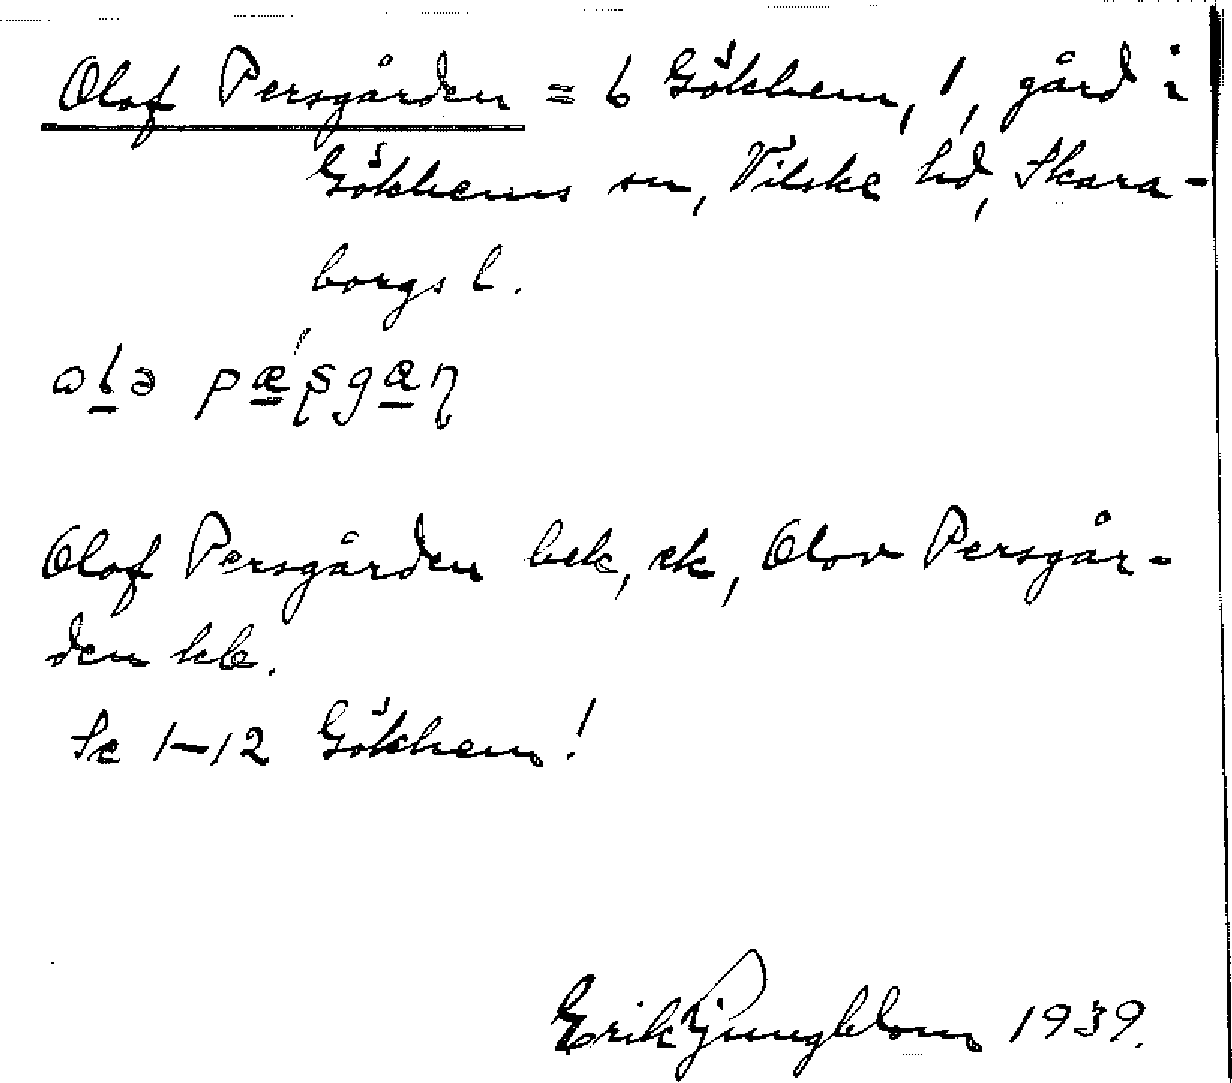 Olof Persgården = 6 Gökhem, 1, gård i
Gökhems sn, Vilske hd, Skara-
borgs l.
olə pǽ̠ʂgæ̠ɳ
Olof Persgården bek, ek, Olov Persgår-
den kb.
Se 1–12 Gökhem!
Erik Ljungblom 1939.